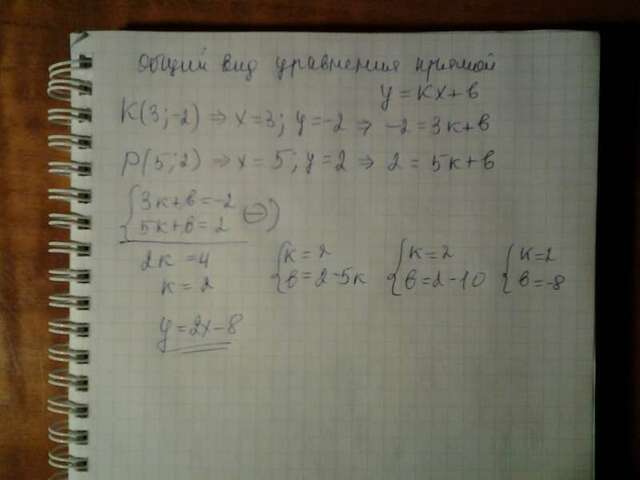 Общий вид уравнения прямой
y = kx + b
K(3; -2) ⇒ x = 3; y = -2 ⇒ -2 = 3k + b
P(5; 2) ⇒ x = 5; y = 2 ⇒ 2 = 5k + b
{3k + b = -2
5k + b = 2 ⊖)
2k = 4
k = 2
{k = 2
b = 2 - 5k
{k = 2
b = 2 - 10
{k = 2
b = -8
y = 2x - 8